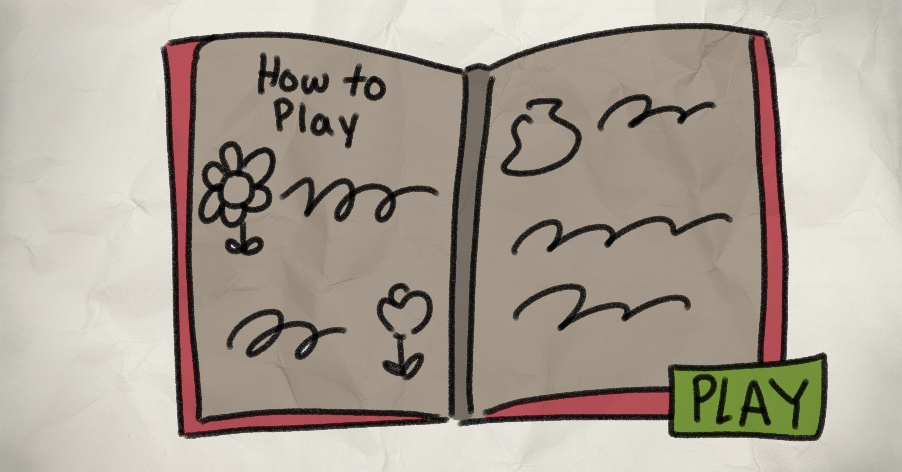 How to
Play
PLAY